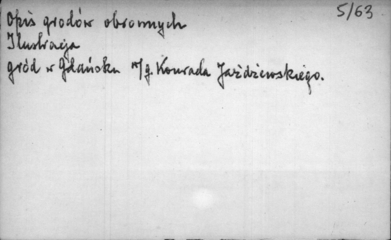 5/63
Opis grodów obronnych
Ilustracja
gród w Gdańsku w/g. Konrada Jażdżewskiego.